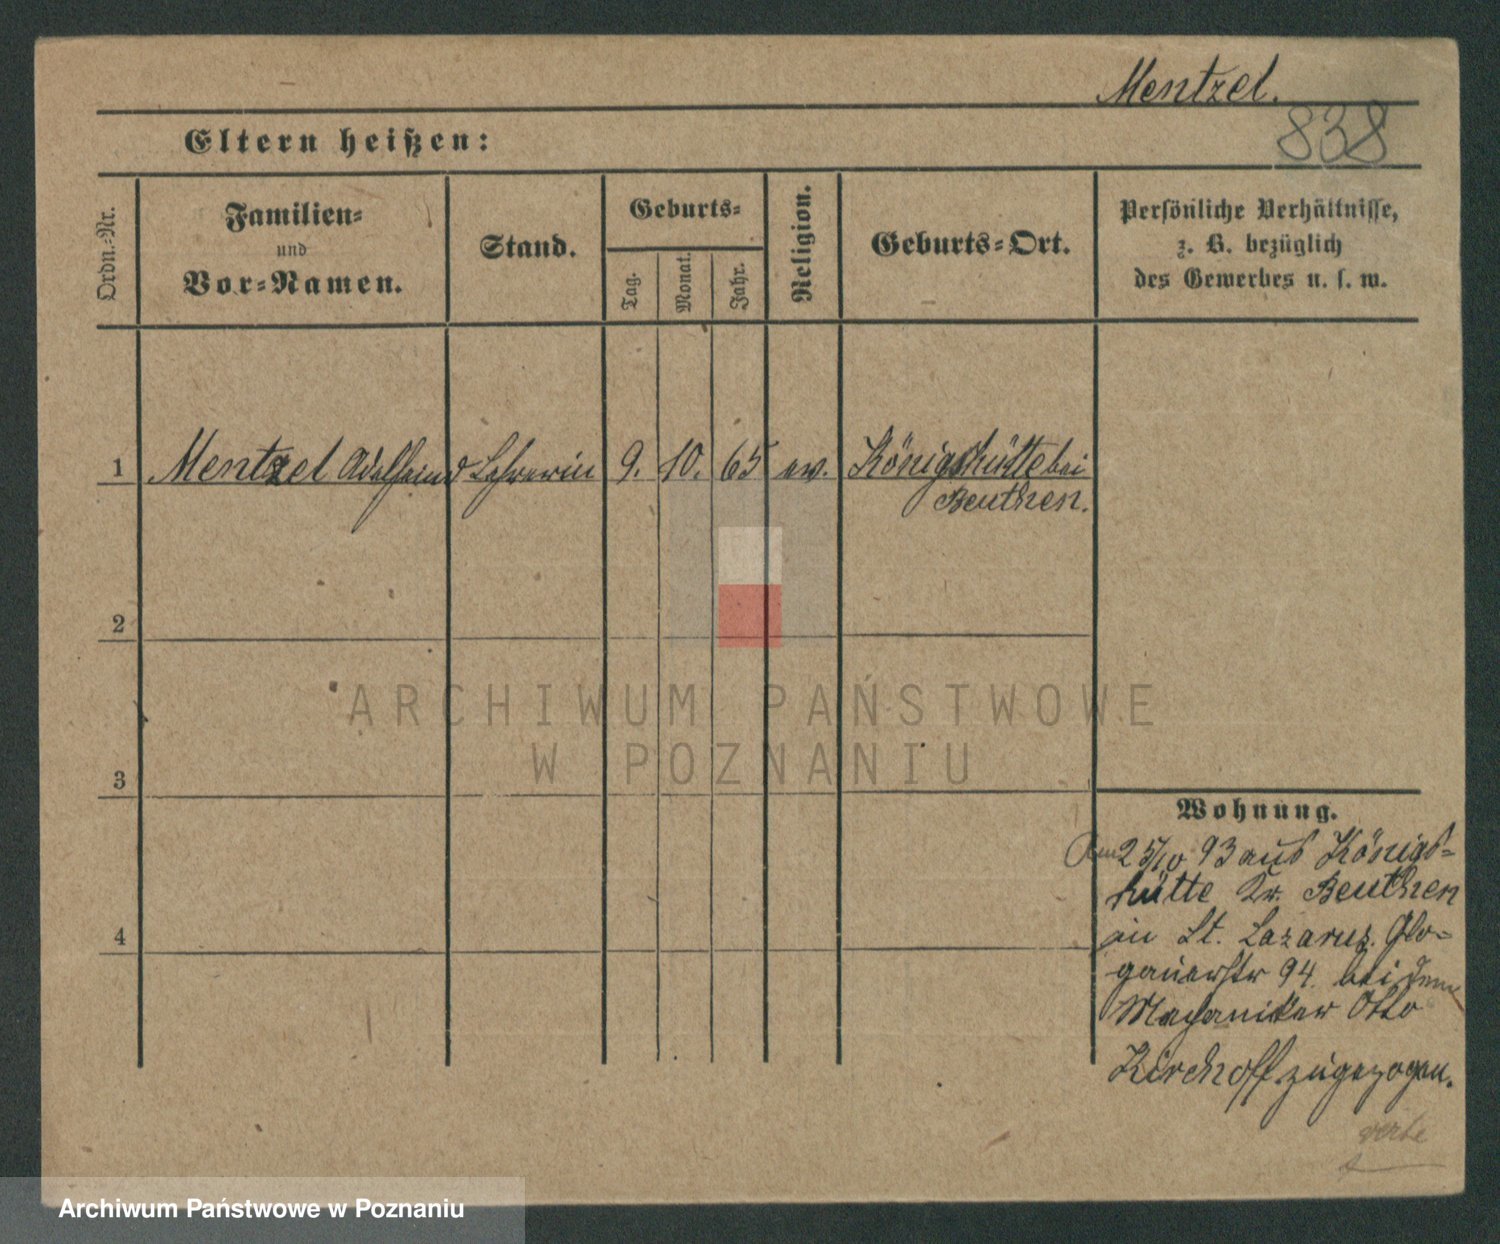 Mentzel.
838
Eltern heißen:
Ordn.-Nr.
Familien-
und
Vor-Namen.
Stand.
Geburts-
Tag.
Monat.
Jahr.
Religion.
Geburts-Ort.
Persönliche Verhältnisse,
z. B. bezüglich
des Gewerbes u. s. w.
1 Mentzel Adelheid Lehrerin 9. 10. 65 ev. Königshütte bei
Beuthen.
2
3
4
ARCHIWUM PAŃSTWOWE
W POZNANIU
Wohnung.
Am 25/10 93 aus Königs-
hütte Kr. Beuthen
in St. Lazarus. Glo-
gauerstr 94. bei dem
Mechaniker Otto
Kirchoff zugezogen.
Archiwum Państwowe w Poznaniu